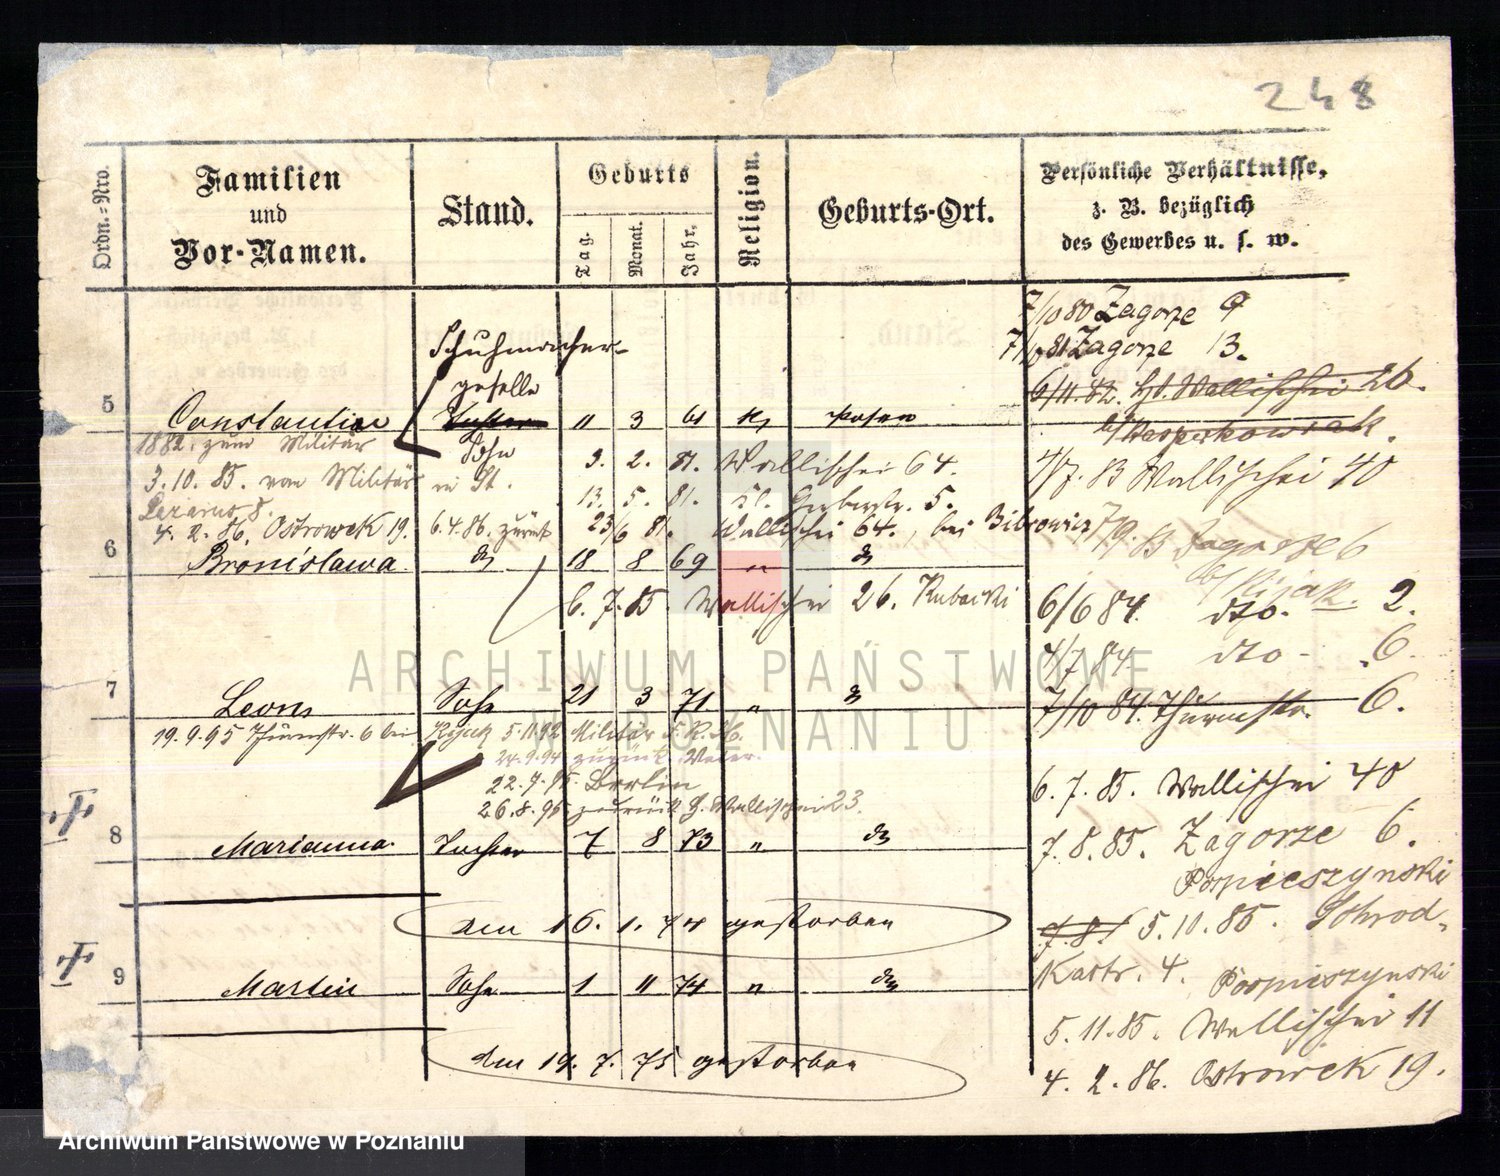 248
Ordn.-Nro.
Familien
und
Vor-Namen.
Stand.
Geburts
Tag.
Monat.
Jahr.
Religion.
Geburts-Ort.
Persönliche Verhältnisse,
z. B. bezüglich
des Gewerbes u. s. w.
7/10 80 Zagorze 9
7/10 81 Zagorze 13.
6/11.82. Wallischei 26.
Schuhmacher-
geselle
5 Constantin 11 3 61 Posen
1882. zum Militär Sohn 9. 2. 81. Wallischei 64.
4/7. 83 Wallischei 40
3.10.85. vom Militär in St. 13. 5. 81. Kl. Gerberstr. 5.
Lazarus 8.
4. 2. 86. Ostrowek 19. 6.4.86. zurück 23/6 81. Wallischei 64., bei
6 Bronislawa do 18 8 69 " do
6. 7. 85. Wallischei 26. Kubacki
6/6 84. dto. 2.
4/7 84. dto - 6.
7 Leon Sohn 21 3 71 "
7/10 84. Thurmstr. 6.
19.9.95 Thurmstr. 6 bei 5.11.92 Militär
24.9.94 zurück Vater.
22.7.95. Berlin
26.8.95 zurück Wallischei 23.
6. 7. 85. Wallischei 40
8 Marianna. Tochter 7 8 73 " do
7. 8. 85. Zagorze 6.
Pospieszynski
den 16. 1. 74 gestorben
7.8. 5.10.85. Schrod-
kastr. 4. Pospieszynski
9 Martin Sohn 1 11 74 " do
5.11.85. Wallischei 11
den 19. 7. 75 gestorben
4. 2. 86. Ostrowek 19.
ARCHIWUM PAŃSTWOWE
W POZNANIU
Archiwum Państwowe w Poznaniu